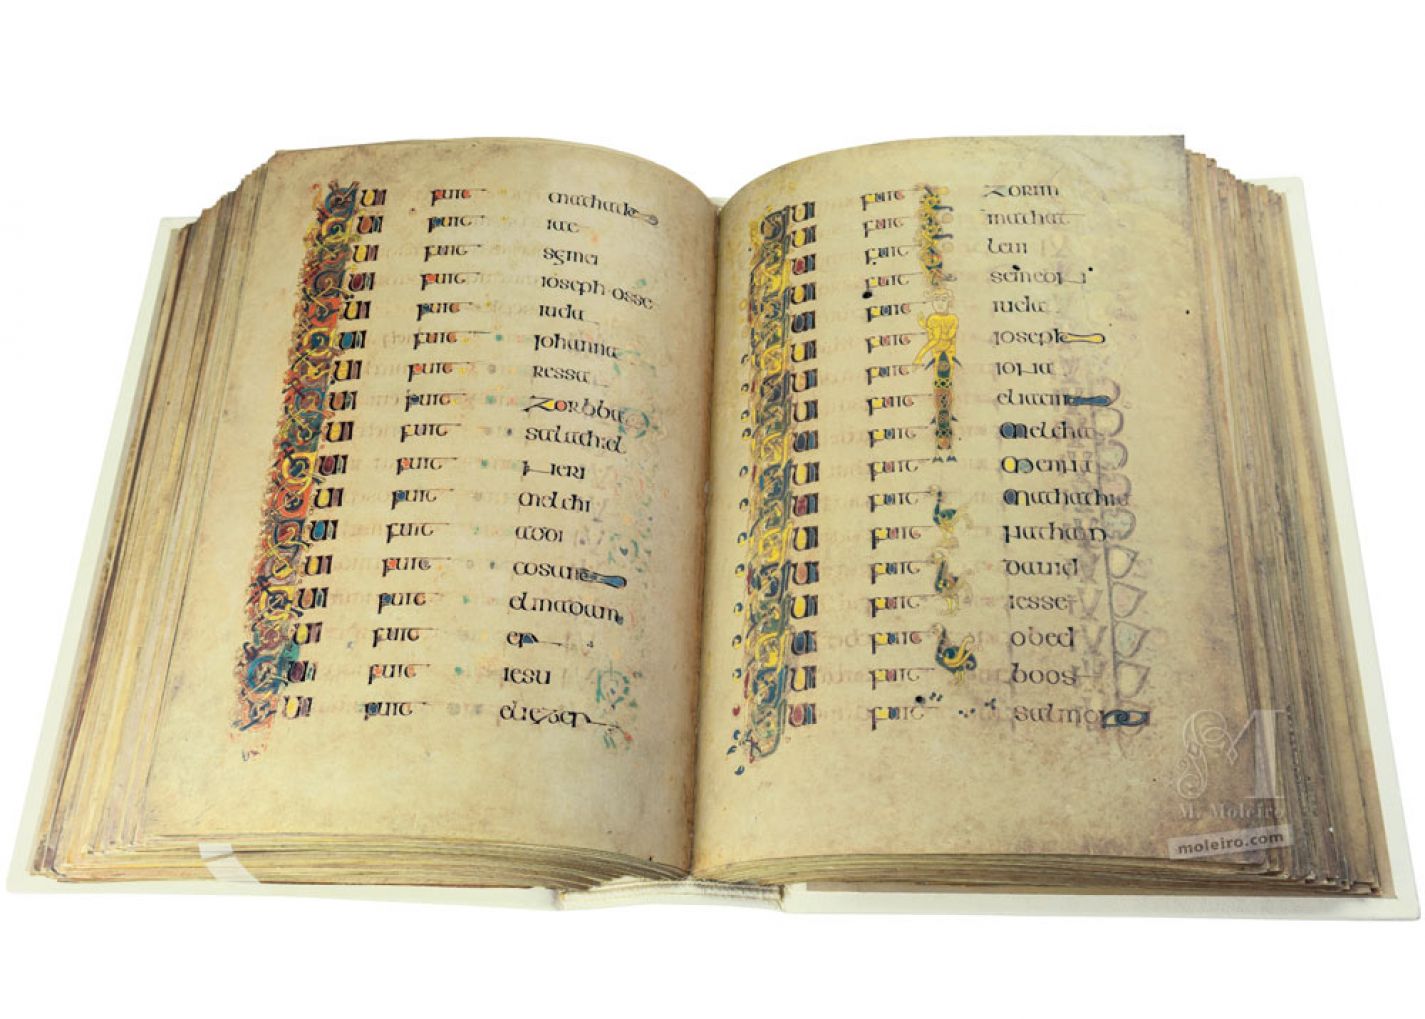 Qui fuit mathathie
Qui fuit iae
Qui fuit semei
Qui fuit ioseph osse
Qui fuit iuda
Qui fuit iohanna
Qui fuit ressa
Qui fuit zorbba
Qui fuit salathiel
Qui fuit neri
Qui fuit melchi
Qui fuit addi
Qui fuit cosam
Qui fuit elmadam
Qui fuit er
Qui fuit iesu
Qui fuit eliezer
Qui fuit zorim
Qui fuit mathat
Qui fuit leui
Qui fuit semeoni
Qui fuit iuda
Qui fuit ioseph
Qui fuit iona
Qui fuit eliacim
Qui fuit melcha
Qui fuit menna
Qui fuit mathathia
Qui fuit nathan
Qui fuit dauid
Qui fuit iesse
Qui fuit obed
Qui fuit boos
Qui fuit salmon
M. Moleiro
moleiro.com